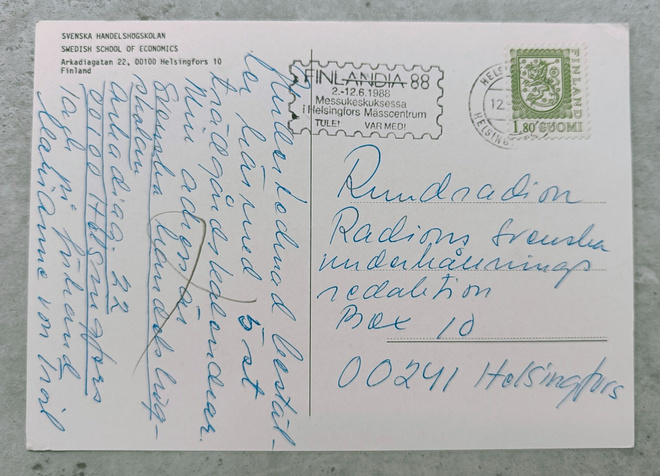 SVENSKA HANDELSHÖGSKOLAN
SWEDISH SCHOOL OF ECONOMICS
Arkadiagatan 22, 00100 Helsingfors 10
Finland
Undertecknad bestäl-
ler härmed 5 st
trädgårdskalendrar.
Min adress är
Svenska handelshög-
skolan
Arkadiag. 22
00100 Helsingfors
Tack på förhand
Marianne von
FINLANDIA 88
2.-12.6.1988
Messukeskuksessa
i Helsingfors Mässcentrum
TULE! VAR MED!
HELS
12
HELSING
FINLAND
1,80 SUOMI
Rundradion
Radions Svenska
underhållnings
redaktion
Box 10
00241 Helsingfors